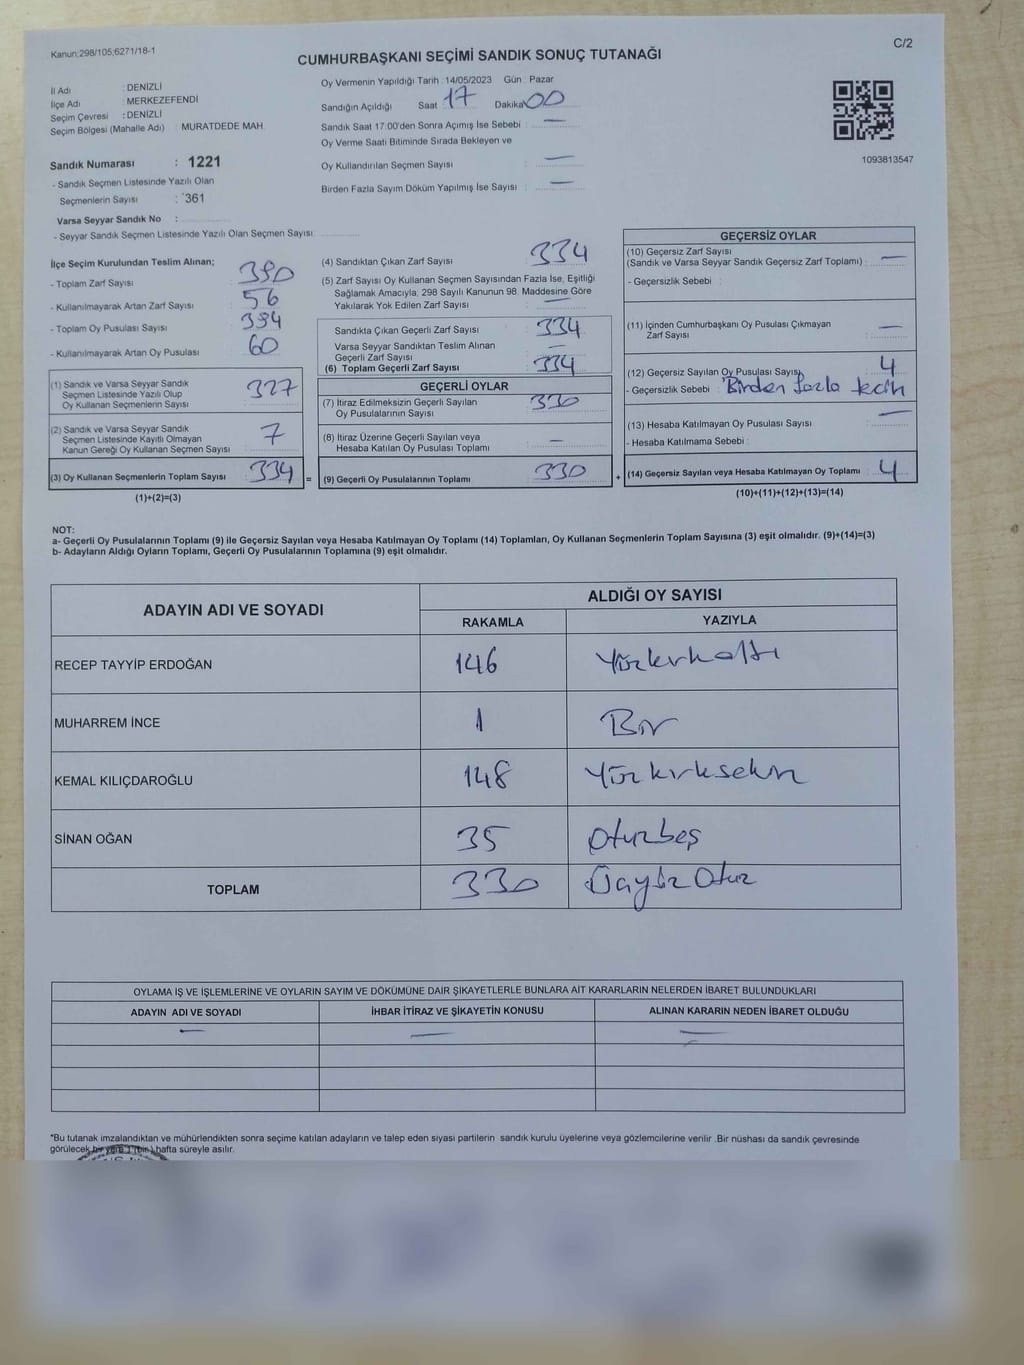 Kanun:298/105;6271/18-1
C/2
CUMHURBAŞKANI SEÇİMİ SANDIK SONUÇ TUTANAĞI
İl Adı : DENİZLİ
İlçe Adı : MERKEZEFENDİ
Seçim Çevresi : DENİZLİ
Seçim Bölgesi (Mahalle Adı) : MURATDEDE MAH
Sandık Numarası : 1221
- Sandık Seçmen Listesinde Yazılı Olan
Seçmenlerin Sayısı : 361
Varsa Seyyar Sandık No :
- Seyyar Sandık Seçmen Listesinde Yazılı Olan Seçmen Sayısı:
Oy Vermenin Yapıldığı Tarih :14/05/2023 Gün : Pazar
Sandığın Açıldığı Saat : 17 Dakika: 00
Sandık Saat 17:00'den Sonra Açımış İse Sebebi : —
Oy Verme Saati Bitiminde Sırada Bekleyen ve
Oy Kullandırılan Seçmen Sayısı : —
Birden Fazla Sayım Döküm Yapılmış İse Sayısı : —
1093813547
İlçe Seçim Kurulundan Teslim Alınan;
- Toplam Zarf Sayısı : 390
- Kullanılmayarak Artan Zarf Sayısı : 56
- Toplam Oy Pusulası Sayısı : 394
- Kullanılmayarak Artan Oy Pusulası : 60
(1) Sandık ve Varsa Seyyar Sandık
Seçmen Listesinde Yazılı Olup
Oy Kullanan Seçmenlerin Sayısı : 327
(2) Sandık ve Varsa Seyyar Sandık
Seçmen Listesinde Kayıtlı Olmayan
Kanun Gereği Oy Kullanan Seçmen Sayısı : 7
(3) Oy Kullanan Seçmenlerin Toplam Sayısı : 334
(1)+(2)=(3)
(4) Sandıktan Çıkan Zarf Sayısı : 334
(5) Zarf Sayısı Oy Kullanan Seçmen Sayısından Fazla İse, Eşitliği
Sağlamak Amacıyla; 298 Sayılı Kanunun 98. Maddesine Göre
Yakılarak Yok Edilen Zarf Sayısı : —
Sandıkta Çıkan Geçerli Zarf Sayısı : 334
Varsa Seyyar Sandıktan Teslim Alınan
Geçerli Zarf Sayısı : —
(6) Toplam Geçerli Zarf Sayısı : 334
GEÇERLİ OYLAR
(7) İtiraz Edilmeksizin Geçerli Sayılan
Oy Pusulalarının Sayısı : 330
(8) İtiraz Üzerine Geçerli Sayılan veya
Hesaba Katılan Oy Pusulası Toplamı : —
= (9) Geçerli Oy Pusulalarının Toplamı : 330
GEÇERSİZ OYLAR
(10) Geçersiz Zarf Sayısı
(Sandık ve Varsa Seyyar Sandık Geçersiz Zarf Toplamı) : —
- Geçersizlik Sebebi :
(11) İçinden Cumhurbaşkanı Oy Pusulası Çıkmayan
Zarf Sayısı : —
(12) Geçersiz Sayılan Oy Pusulası Sayısı : 4
- Geçersizlik Sebebi : Birden fazla
(13) Hesaba Katılmayan Oy Pusulası Sayısı : —
- Hesaba Katılmama Sebebi :
+ (14) Geçersiz Sayılan veya Hesaba Katılmayan Oy Toplamı : 4
(10)+(11)+(12)+(13)=(14)
NOT:
a- Geçerli Oy Pusulalarının Toplamı (9) ile Geçersiz Sayılan veya Hesaba Katılmayan Oy Toplamı (14) Toplamları, Oy Kullanan Seçmenlerin Toplam Sayısına (3) eşit olmalıdır. (9)+(14)=(3)
b- Adayların Aldığı Oyların Toplamı, Geçerli Oy Pusulalarının Toplamına (9) eşit olmalıdır.
ADAYIN ADI VE SOYADI
ALDIĞI OY SAYISI
RAKAMLA YAZIYLA
RECEP TAYYİP ERDOĞAN 146 Yüzkırkaltı
MUHARREM İNCE 1 Bir
KEMAL KILIÇDAROĞLU 148 Yüzkırksekiz
SİNAN OĞAN 35 Otuzbeş
TOPLAM 330 Üçyüz Otuz
OYLAMA İŞ VE İŞLEMLERİNE VE OYLARIN SAYIM VE DÖKÜMÜNE DAİR ŞİKAYETLERLE BUNLARA AİT KARARLARIN NELERDEN İBARET BULUNDUKLARI
ADAYIN ADI VE SOYADI İHBAR İTİRAZ VE ŞİKAYETİN KONUSU ALINAN KARARIN NEDEN İBARET OLDUĞU
— — —
*Bu tutanak imzalandıktan ve mühürlendikten sonra seçime katılan adayların ve talep eden siyasi partilerin sandık kurulu üyelerine veya gözlemcilerine verilir .Bir nüshası da sandık çevresinde
görülecek bir yere 1 (bir) hafta süreyle asılır.